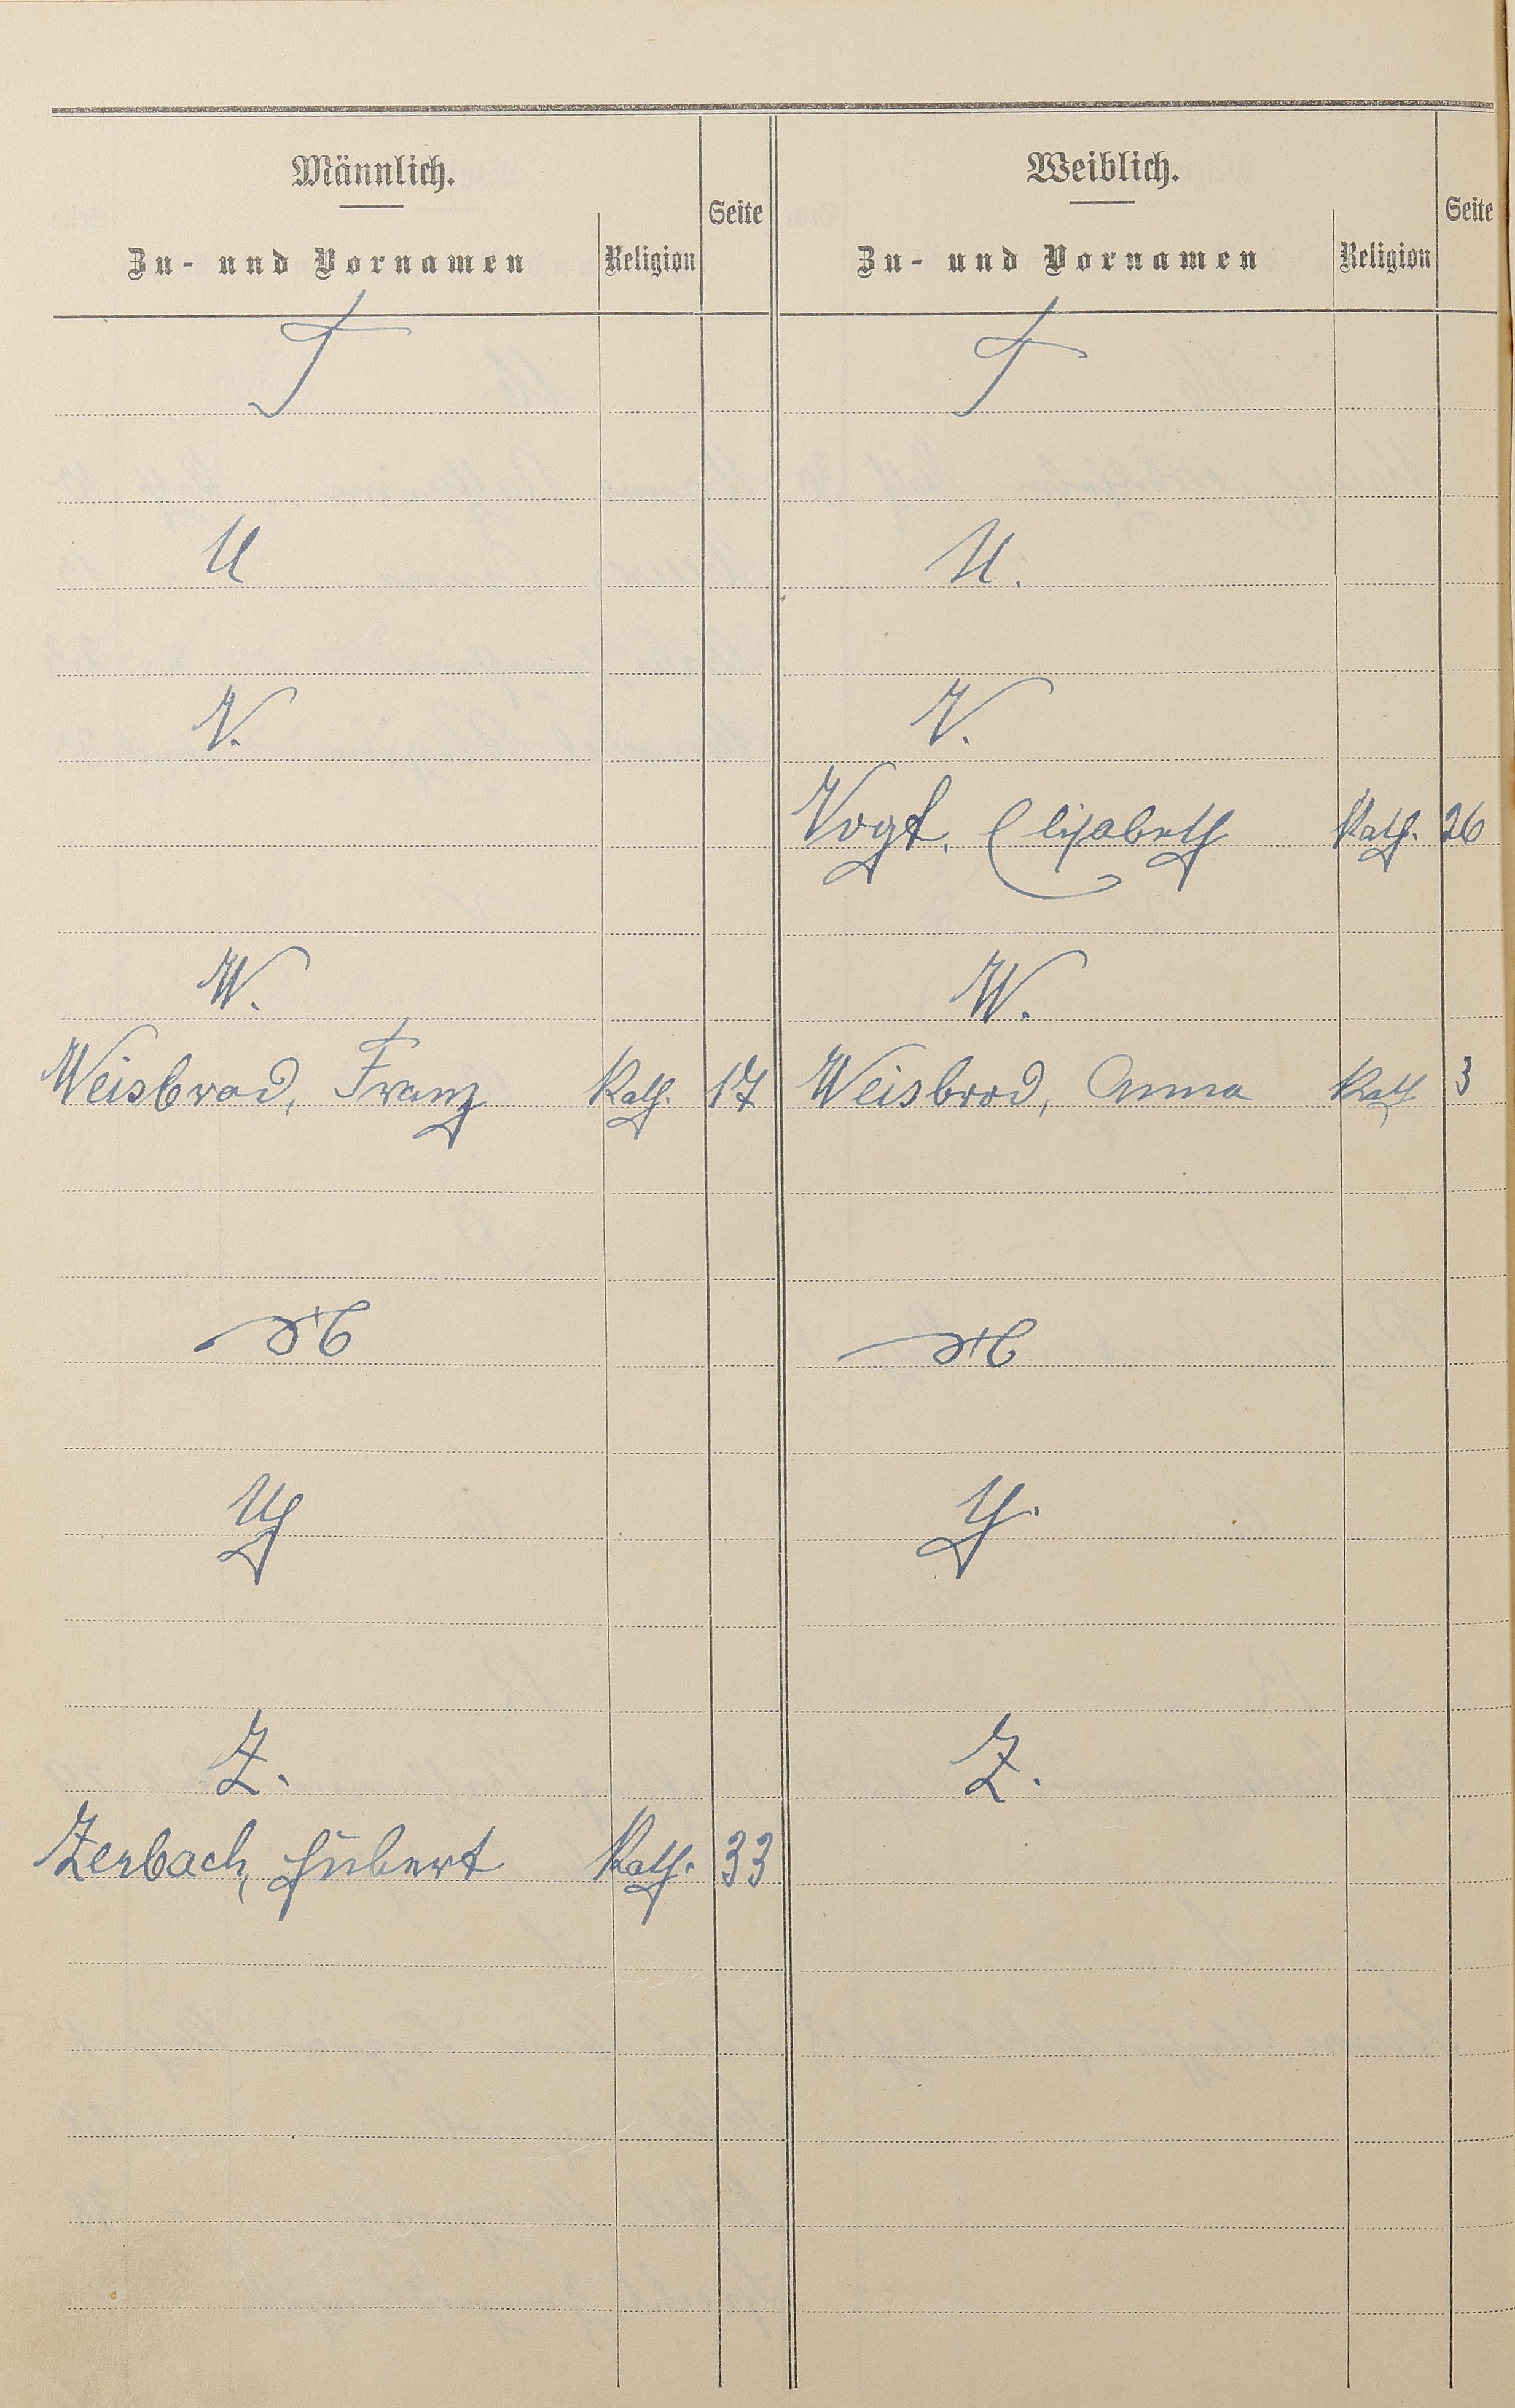 Männlich. Weiblich.
Seite Seite
Zu- und Vornamen Religion Zu- und Vornamen Religion
T T
U U.
V. V.
Vogt, Elisabeth Kath. 26
W. W.
Weisbrod, Franz Kath. 17 Weisbrod, Anna Kath 3
X X
Y Y.
Z. Z.
Zerbach, Hubert Kath. 33